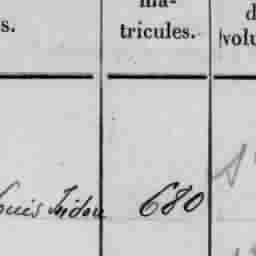 s.
ma-
tricules.
d
volu
ouis Isidor
680